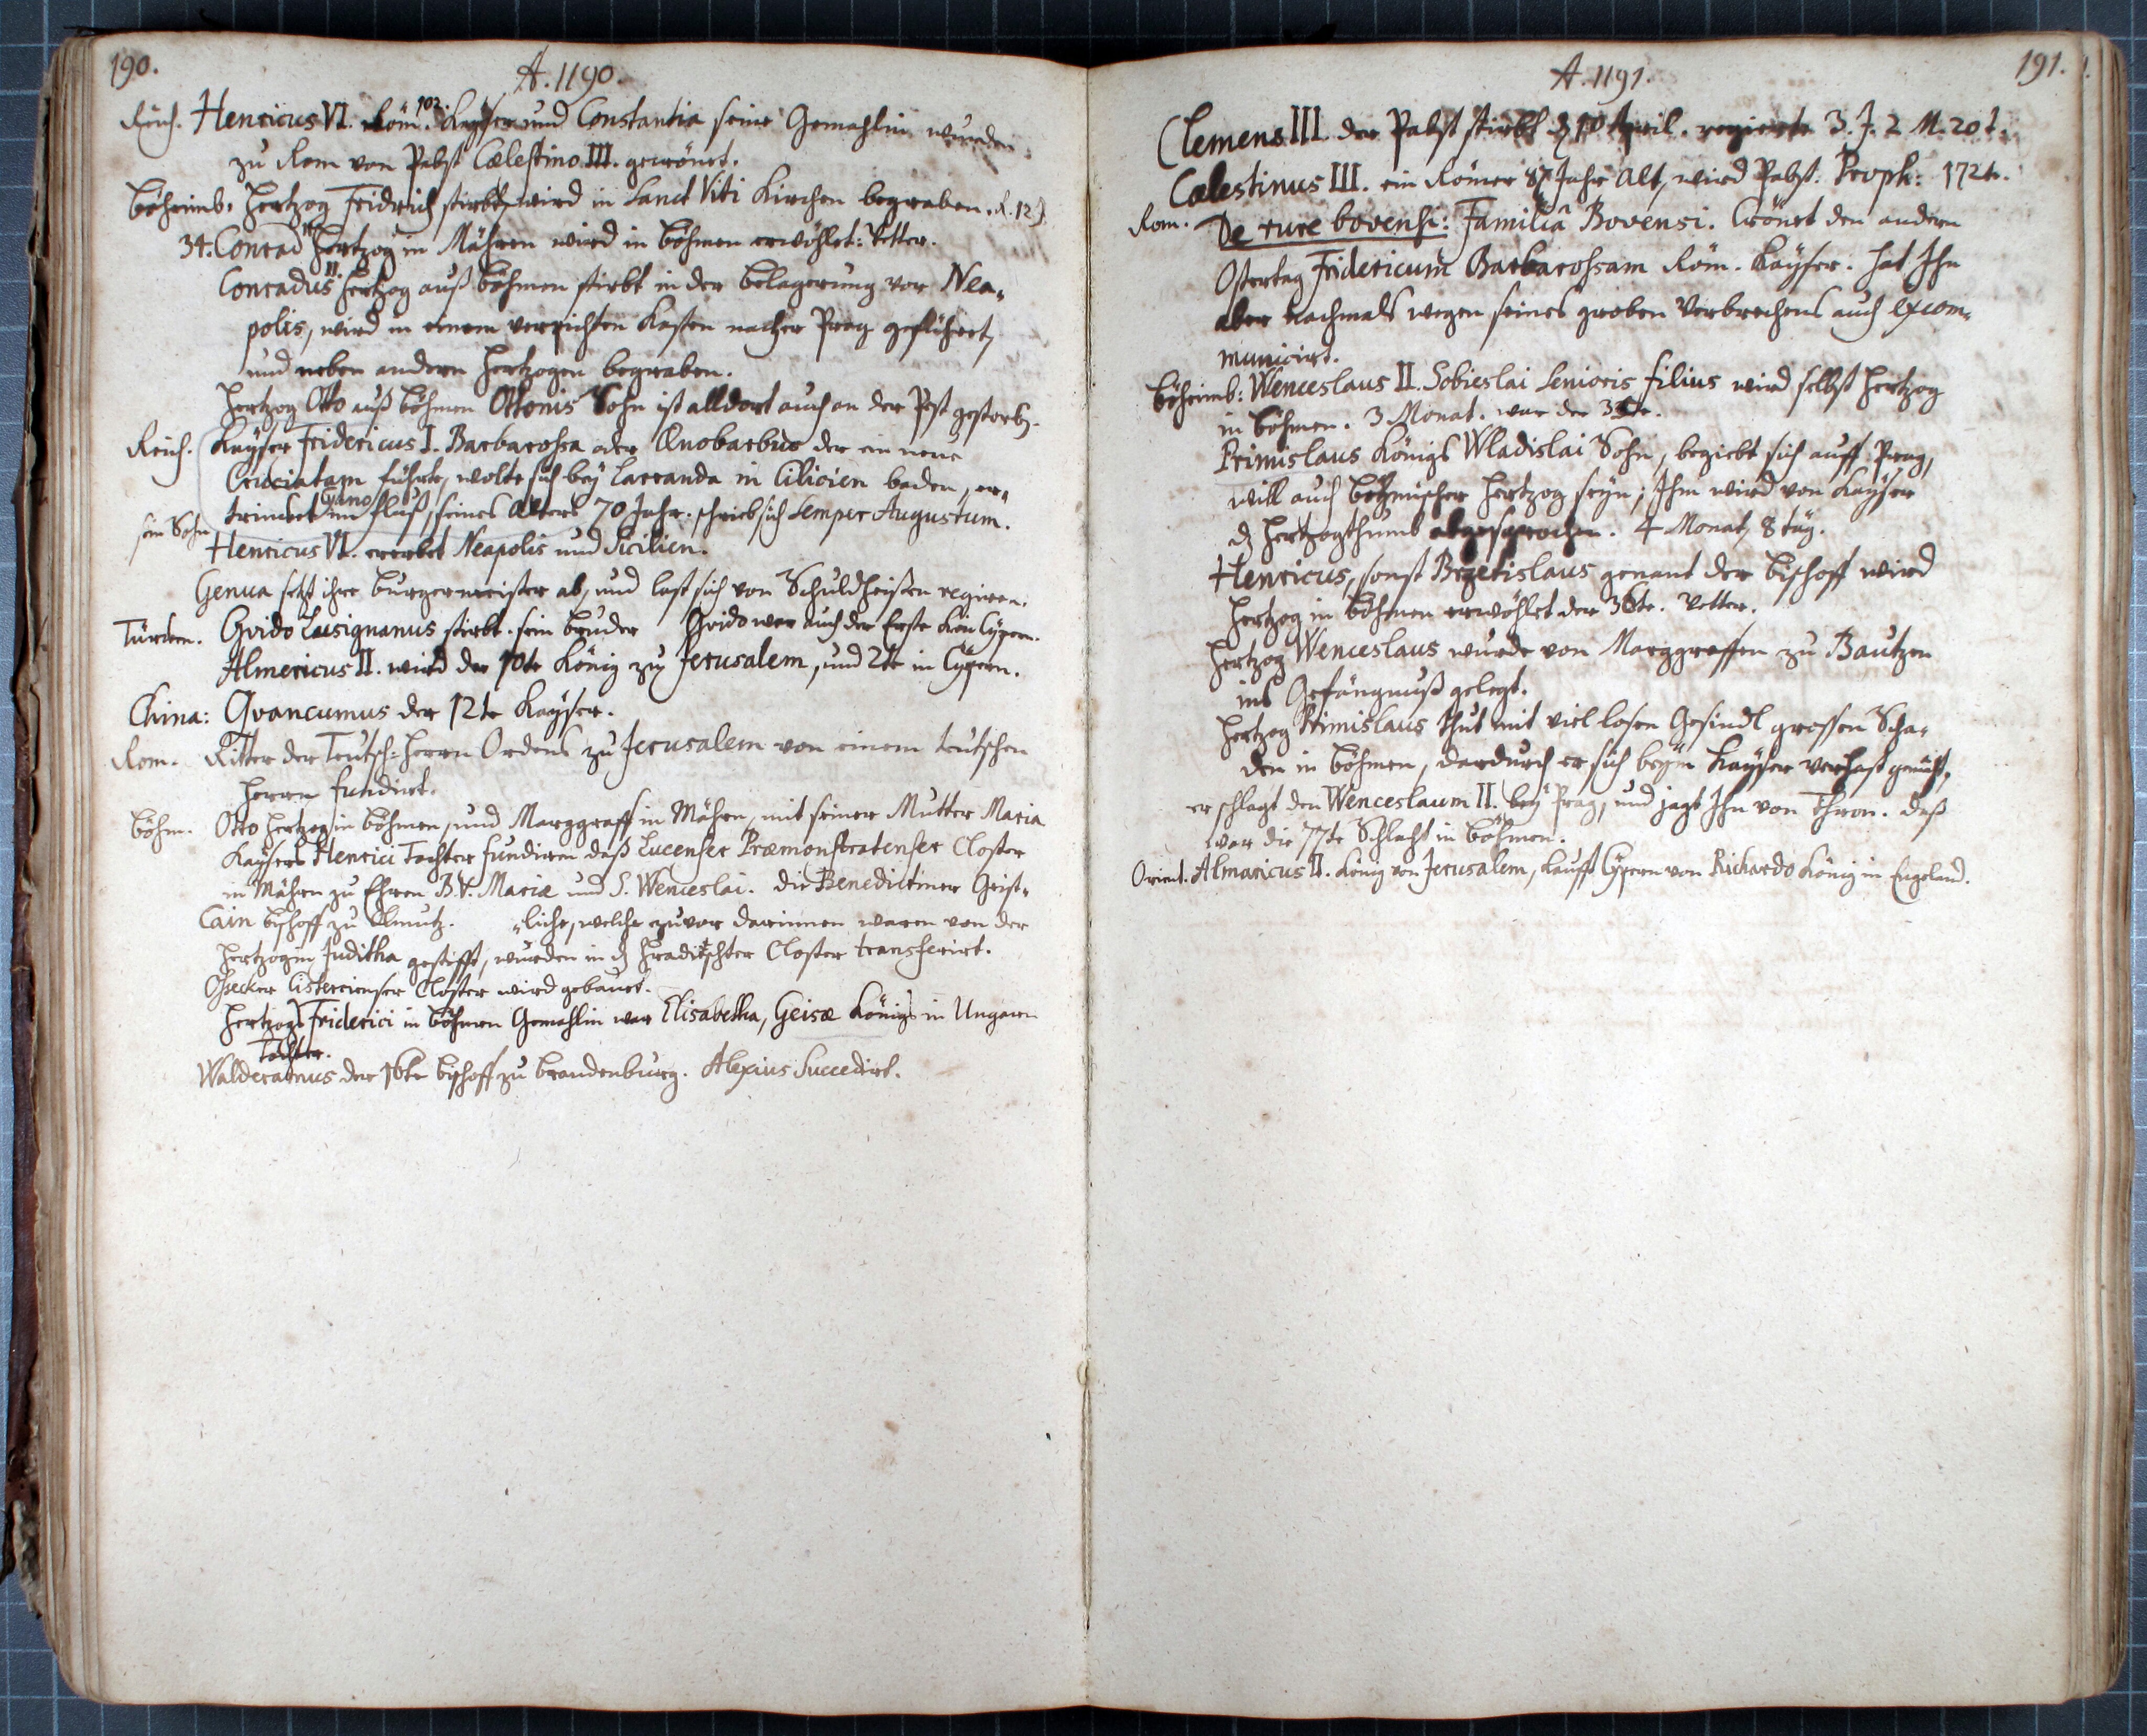 190.
A. 1190.
Reich. Henricus VI. Röm. 102. Kayser und Constantia seine Gemahlin wurden
zu Rom von Pabst Cælestino III. gecrönet.
Böheimb. Hertzog Fridrich stirbt, wird in Sanct Viti Kirchen begraben. R. 12 J.
34. Conrad II Hertzog in Mähren wird in Böhmen erwöhlet: Vetter.
Conradus II. Hertzog auß Böhmen stirbt in der Belagerung vor Nea-
polis, wird in einem verpichten Kasten nacher Prag geführet,
und neben andern Hertzogen begraben.
Hertzog Otto auß Böhmen Ottonis Sohn ist alldort auch an der Pest gestorb.
Reich. Kayser Fridericus I. Barbarossa oder Ænobarbus der ein neue
Cruciatam führte, wolte sich bey Larranda in Cilicien baden, er-
trincket im Cidno fluß, seines Alters 70 Jahr. schrieb sich Semper Augustum.
sein Sohn Henricus VI. ererbet Neapolis und Sicilien.
Genua setzt ihre Burgermeister ab, und last sich von Schuldheißen regiren.
Türcken. Gvido Lusignanus stirbt. sein Bruder Gvido war auch der Erste Kön Cypern.
Almericus II. wird der 10te König zu Jerusalem, und 2te in Cypern.
China: Qvancumus der 12te Kayser.
Rom. Ritter der Teutsch: Herrn Ordens zu Jerusalem von einem teutschen
Herrn fundirt.
Böhm. Otto Hertzog in Böhmen, und Marggraff in Mähren, mit seiner Mutter Maria
Kaysers Henrici Tochter fundiren daß Lucenser Præmonstratenser Closter
in Mähren zu Ehren B. V. Mariæ und S. Wenceslai. die Benedictiner Geist-
Cain Bischoff zu Olmutz. -liche, welche zuvor darinnen waren von der
Hertzogin Juditha gestifft, wurden in d Hraditschter Closter transferirt.
Ossecker Cistercienser Closter wird gebauet.
Hertzogs Friderici in Böhmen Gemahlin war Elisabetha, Geisæ Königs in Ungarn
Tochter.
Walderamus der 16te Bischoff zu Brandenburg. Alexius Succedirt.
191.
A. 1191.
Clemens III. der Pabst stirbt d 10 April. regierte 3. J. 2 M. 20 t.
Cælestinus III. ein Römer 87 Jahr alt, wird Pabst: Proph: 172te.
Rom. De rure bovensi: Familiâ Bovensi. Crönet den andern
Ostertag Fridericum Barbarossam Röm. Kayser. hat Ihn
aber nachmals wegen seines groben Verbrechens auch excom-
municirt.
Böheimb: Wenceslaus II. Sobieslai Senioris filius wird selbst Hertzog
in Böhmen. 3 Monat. war der 35te.
Primislaus Königs Wladislai Sohn, begiebt sich auff Prag,
will auch Böhmischer Hertzog seyn; Ihm wird von Kayser
d Hertzogthumb abgesprochen. 4 Monat, 8 täg.
Henricus, sonst Brzetislaus genant der Bischoff wird
Hertzog in Böhmen erwöhlet der 36te. Vetter.
Hertzog Wenceslaus wurde von Marggraffen zu Bautzen
ins Gefängnuß gelegt.
Hertzog Primislaus thut mit viel losen Gesindl grossen Scha-
den in Böhmen, dardurch er sich beym Kayser verhast gemacht,
er schlagt den Wenceslaum II. bey Prag, und jagt Ihn von Thron. daß
war die 77te Schlacht in Böhmen.
Orient. Almaricus II. König von Jerusalem, kaufft Cypern von Richardo König in Engeland.